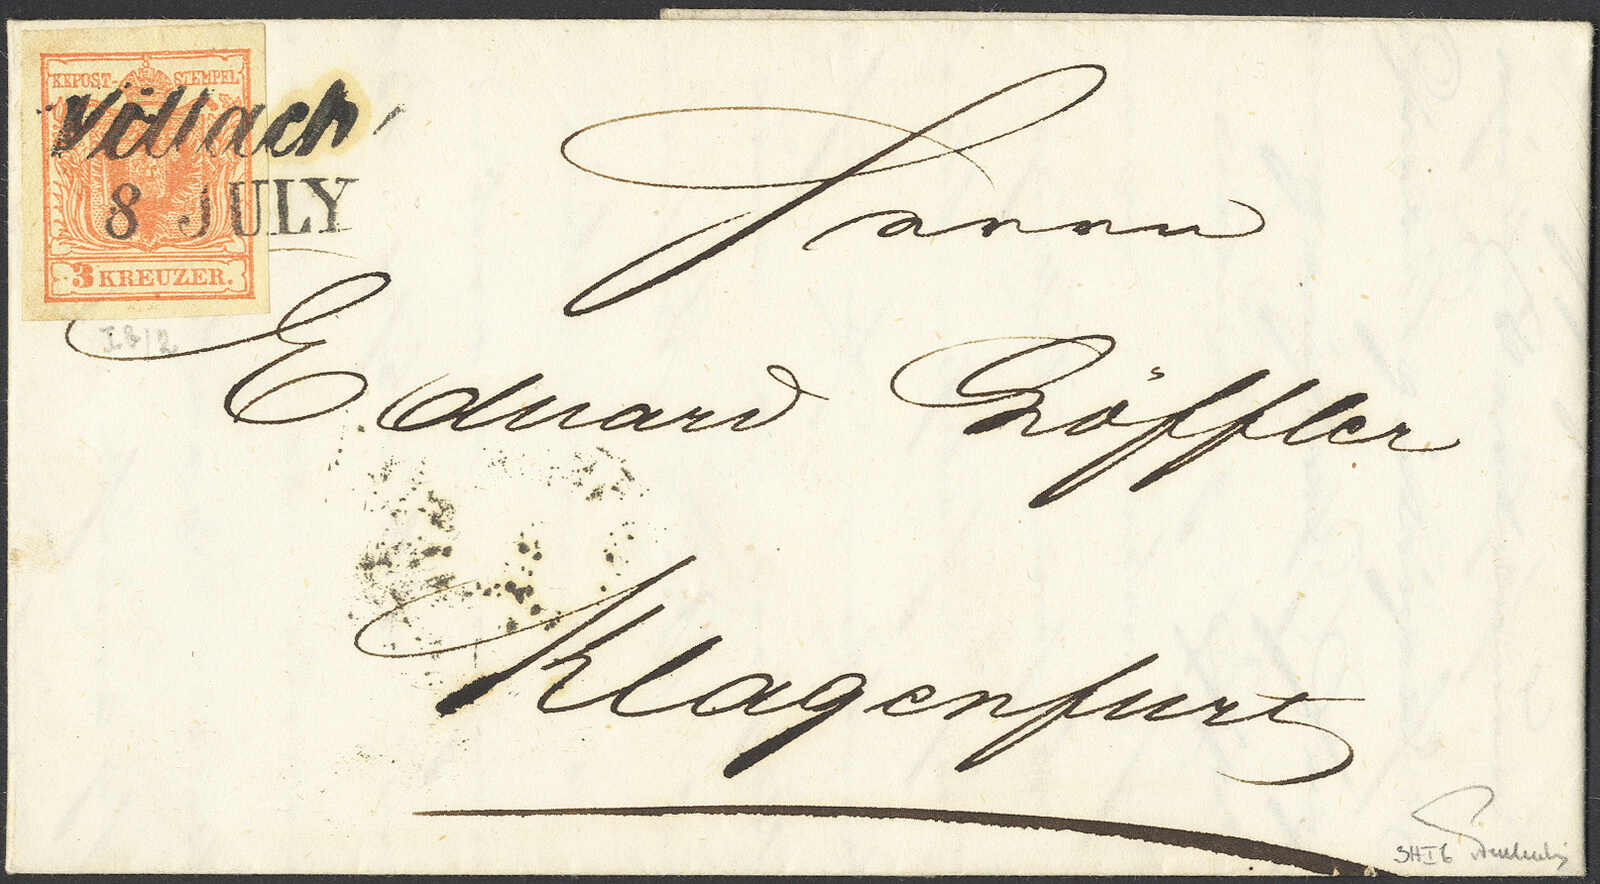 KKPOST-STEMPEL
Villach
8 JULY
3 KREUZER.
I 8/2
Herrn
Eduard Höffler
Klagenfurt
3HIb